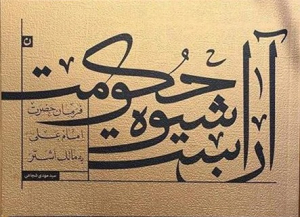 آن است شیوه حکومت
فرمان حضرت
امام علی
به مالک اشتر
سید مهدی شجاعی